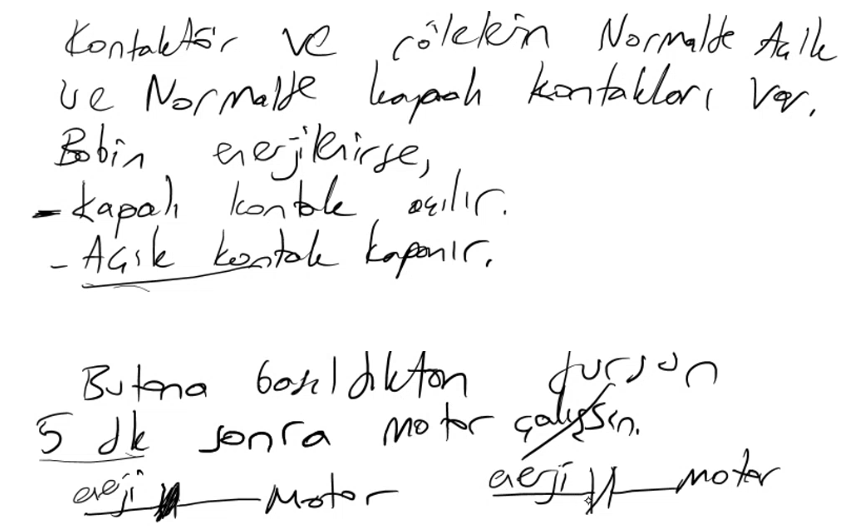 Kontaktör ve rölelein Normalde Açık
ve Normalde kapalı kontakları var.
Bobin enerjilenirse,
- Kapalı kontak açılır.
- Açık kontak kapanır.
Butona basıldıktan dursun
5 dk sonra motor çalışsın.
enerji motor enerji motor